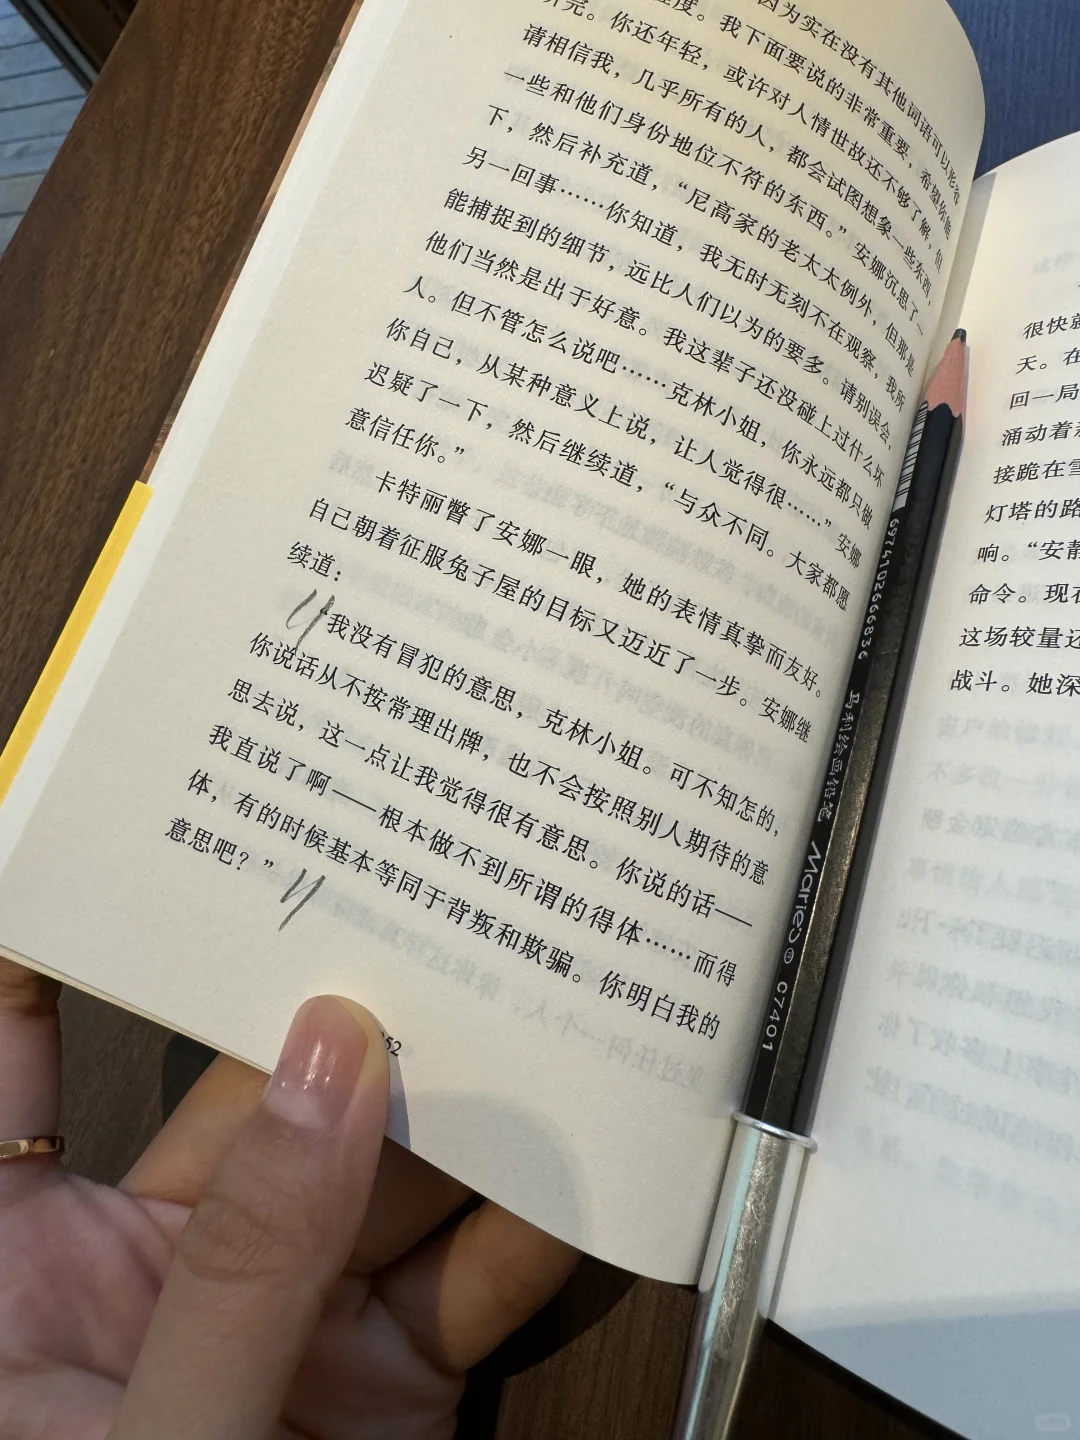 因为实在没有其他词语可以形容
程度。我下面要说的非常重要，希望你能
听完。你还年轻，或许对人情世故还不够了解，但
请相信我，几乎所有的人，都会试图想象一些东西，
一些和他们身份地位不符的东西。”安娜沉思了一
下，然后补充道，“尼高家的老太太例外，但那是
另一回事……你知道，我无时无刻不在观察，我所
能捕捉到的细节，远比人们以为的要多。请别误会，
他们当然是出于好意。我这辈子还没碰上过什么坏
人。但不管怎么说吧……克林小姐，你永远都只做
你自己，从某种意义上说，让人觉得很……”安娜
迟疑了一下，然后继续道，“与众不同。大家都愿
意信任你。”
卡特丽瞥了安娜一眼，她的表情真挚而友好。
自己朝着征服兔子屋的目标又迈近了一步。安娜继
续道：
“我没有冒犯的意思，克林小姐。可不知怎的，
你说话从不按常理出牌，也不会按照别人期待的意
思去说，这一点让我觉得很有意思。你说的话——
我直说了啊——根本做不到所谓的得体……而得
体，有的时候基本等同于背叛和欺骗。你明白我的
意思吧？”
52
6974102666836 马利绘画铅笔 Marie's® C7401
很快就
天。在
回一局
涌动着
接跪在雪
灯塔的路
响。“安静
命令。现在
这场较量还
战斗。她深